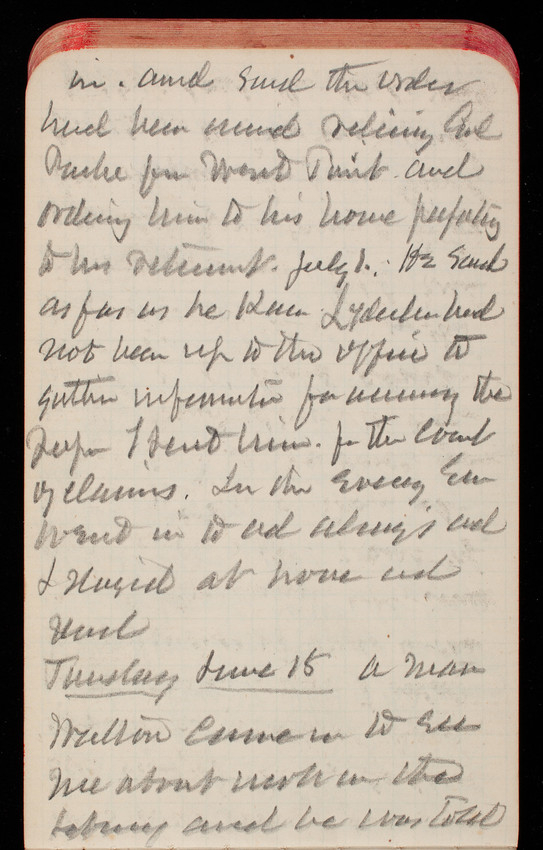 in. and said the order
had been issued relieving Col
from West Point and
ordering him to his home preparatory
to his retirement. July 1. He said
as far as he knew had
not been up to the office to
gather information for the
I sent him. for the Court
of claims. In the Evening Em
went in to and
I stayed at home and
read
Tuesday June 15 a man
Walton came in to see
me about work in the
and he was told